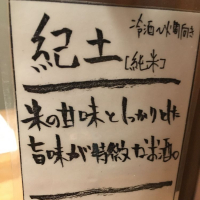 冷酒〜火間向き
紀土
[純米]
米の甘味としっかりとした
旨味が特徴なお酒。